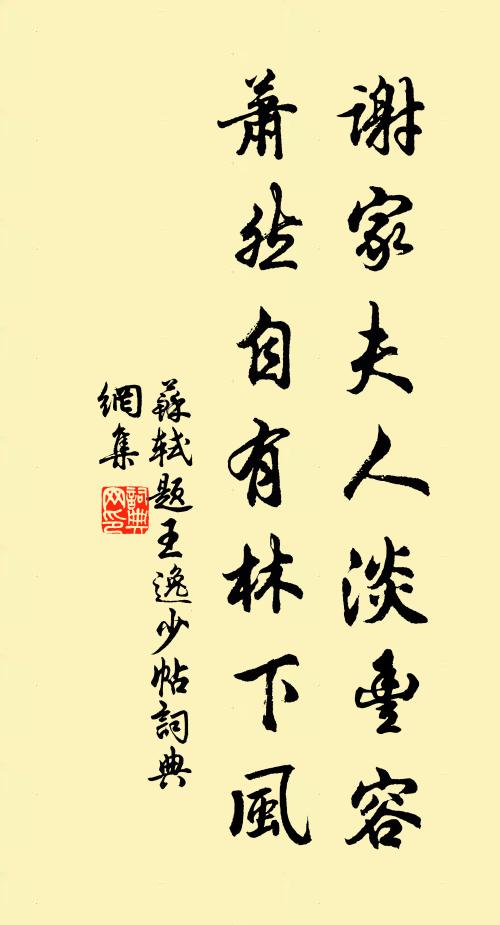 謝家夫人淡豊容
蕭然自有林下風
蘇軾題王逸少帖詞典
網集
詞典
网印